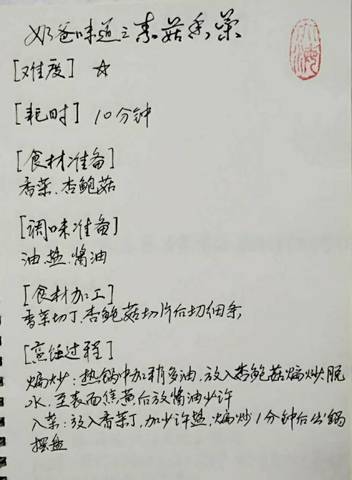 奶爸味道之素菇香菜
[难度] ☆
[耗时] 10分钟
[食材准备]
香菜.杏鲍菇
[调味准备]
油.盐.酱油
[食材加工]
香菜切丁.杏鲍菇切片后切细条
[烹饪过程]
煸炒:热锅中加稍多油.放入杏鲍菇煸炒脱
水.至表面焦黄后放酱油少许
入菜:放入香菜丁,加少许盐,煸炒1分钟后出锅
摆盘